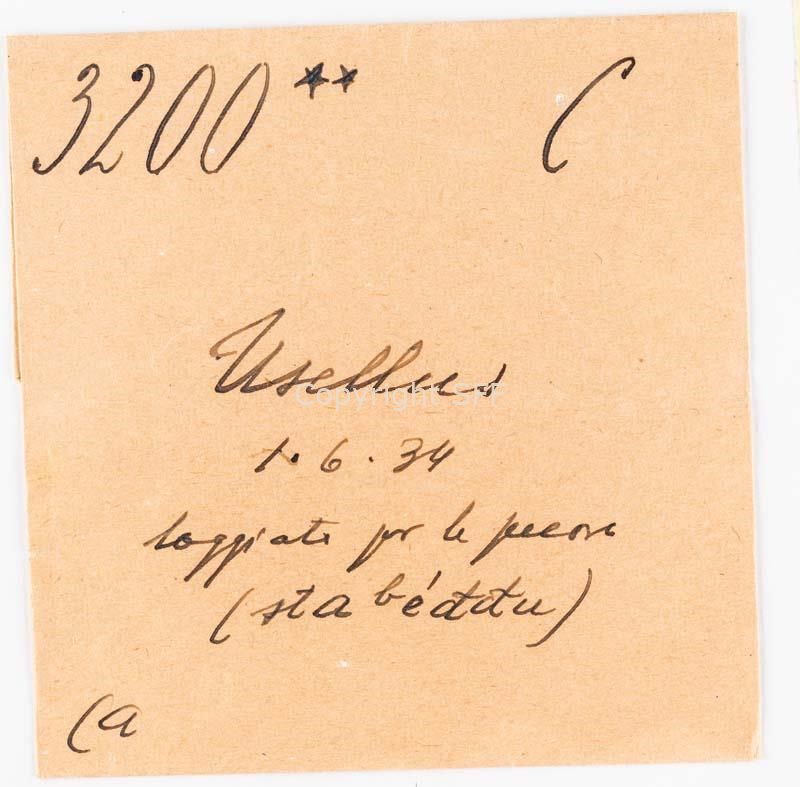 3200 ** C
Usellus
Copyright SFF
1.6.34
loggiato per le pecore
(sta béđđu)
Ca